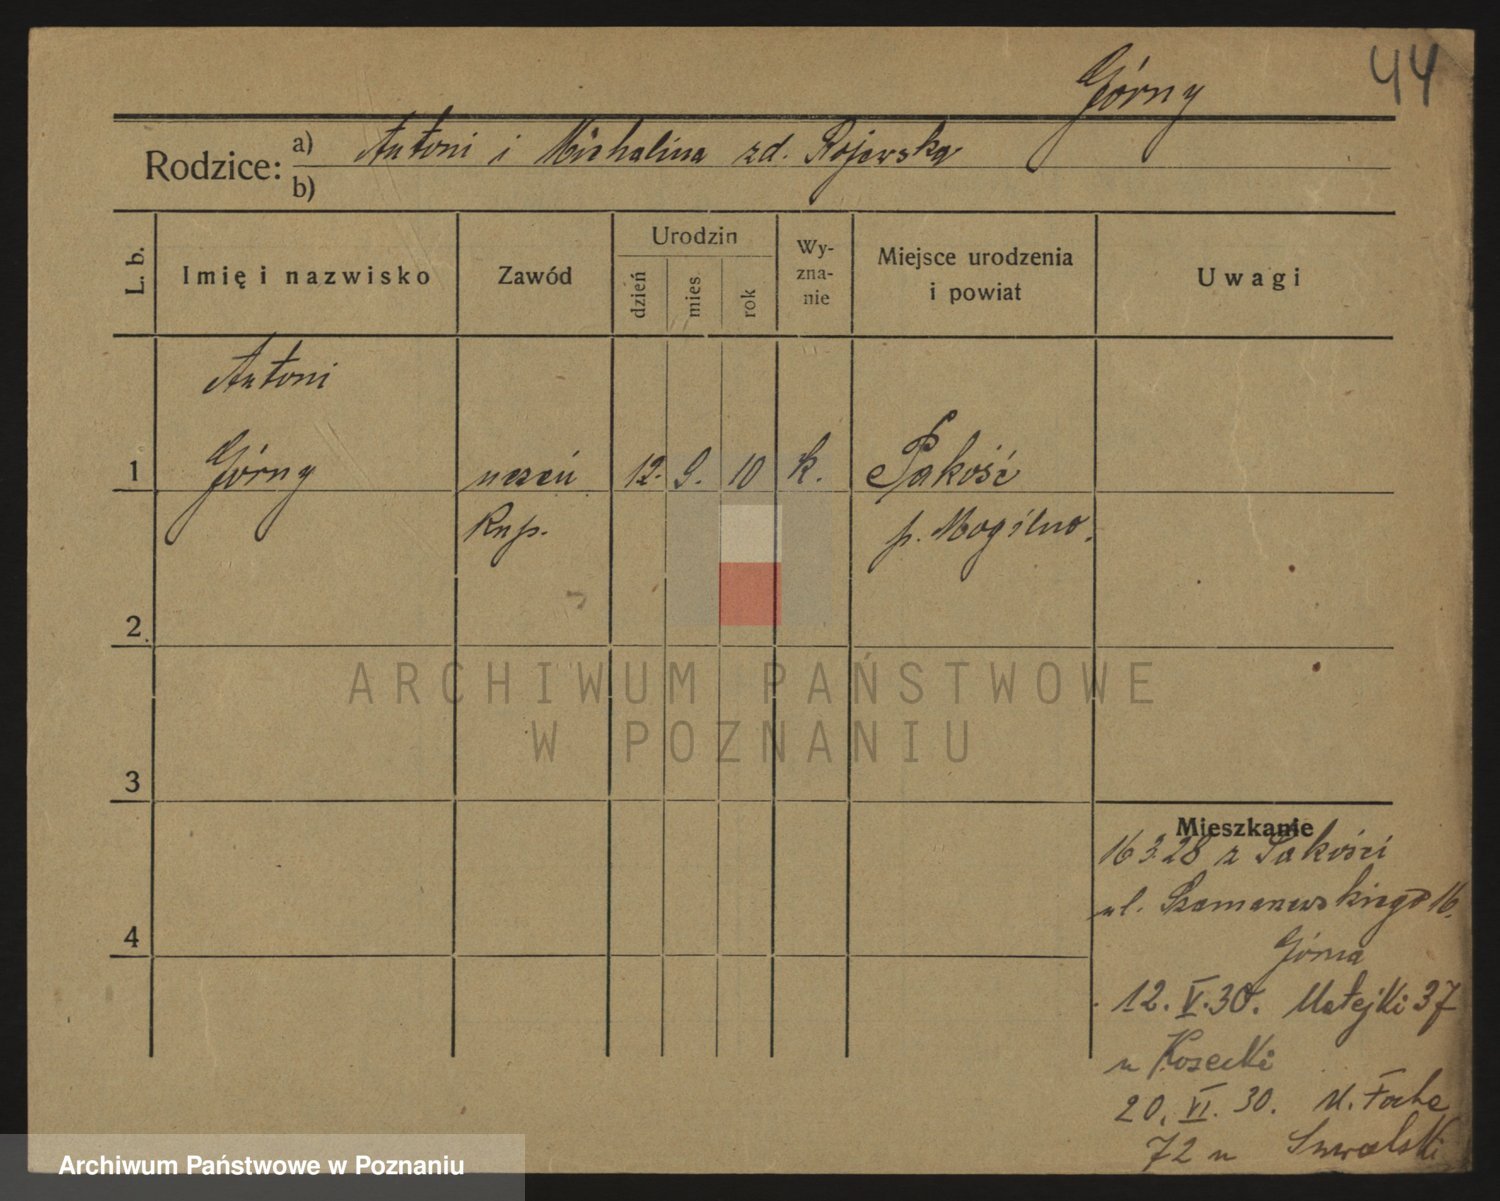 44
Górny
Rodzice: a) Antoni i Michalina zd. Rojewska
b)
L. b. Imię i nazwisko Zawód Urodzin dzień mies. rok Wy-zna-nie Miejsce urodzenia i powiat Uwagi
Antoni
1 Górny uczeń 12. 9. 10 k. Pakość
kup. p. Mogilno.
2
ARCHIWUM PAŃSTWOWE
W POZNANIU
3
Mieszkanie
16 3 28 z Pakości
ul. Szamarzewskiego 16.
4
Górna
12. V. 30. Matejki 37
u Kosecki
20. VI. 30. M. Focha
72 u Suwalski
Archiwum Państwowe w Poznaniu